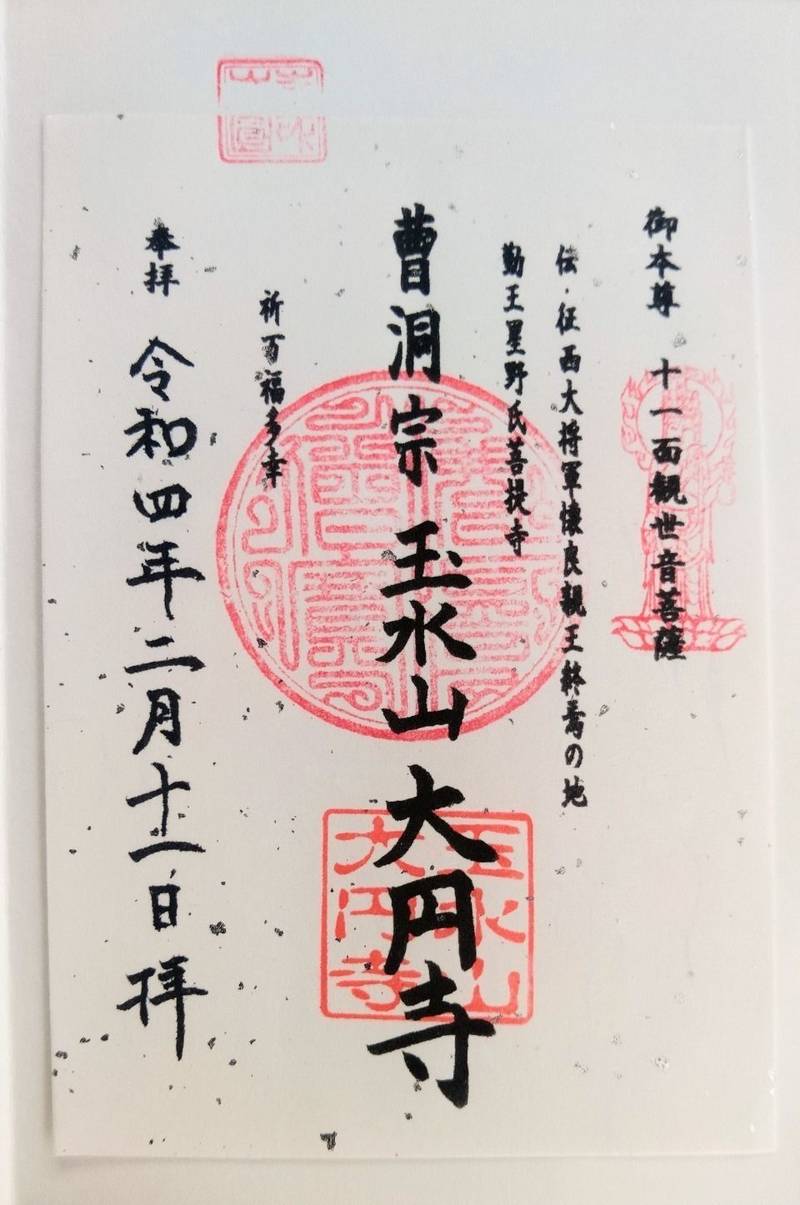 御本尊 十一面観世音菩薩
伝・征西大将軍懐良親王終焉の地
勤王星野氏菩提寺
曹洞宗 玉水山 大円寺
玉水山
大円寺
祈万福多幸
奉拝 令和四年二月十一日 拝